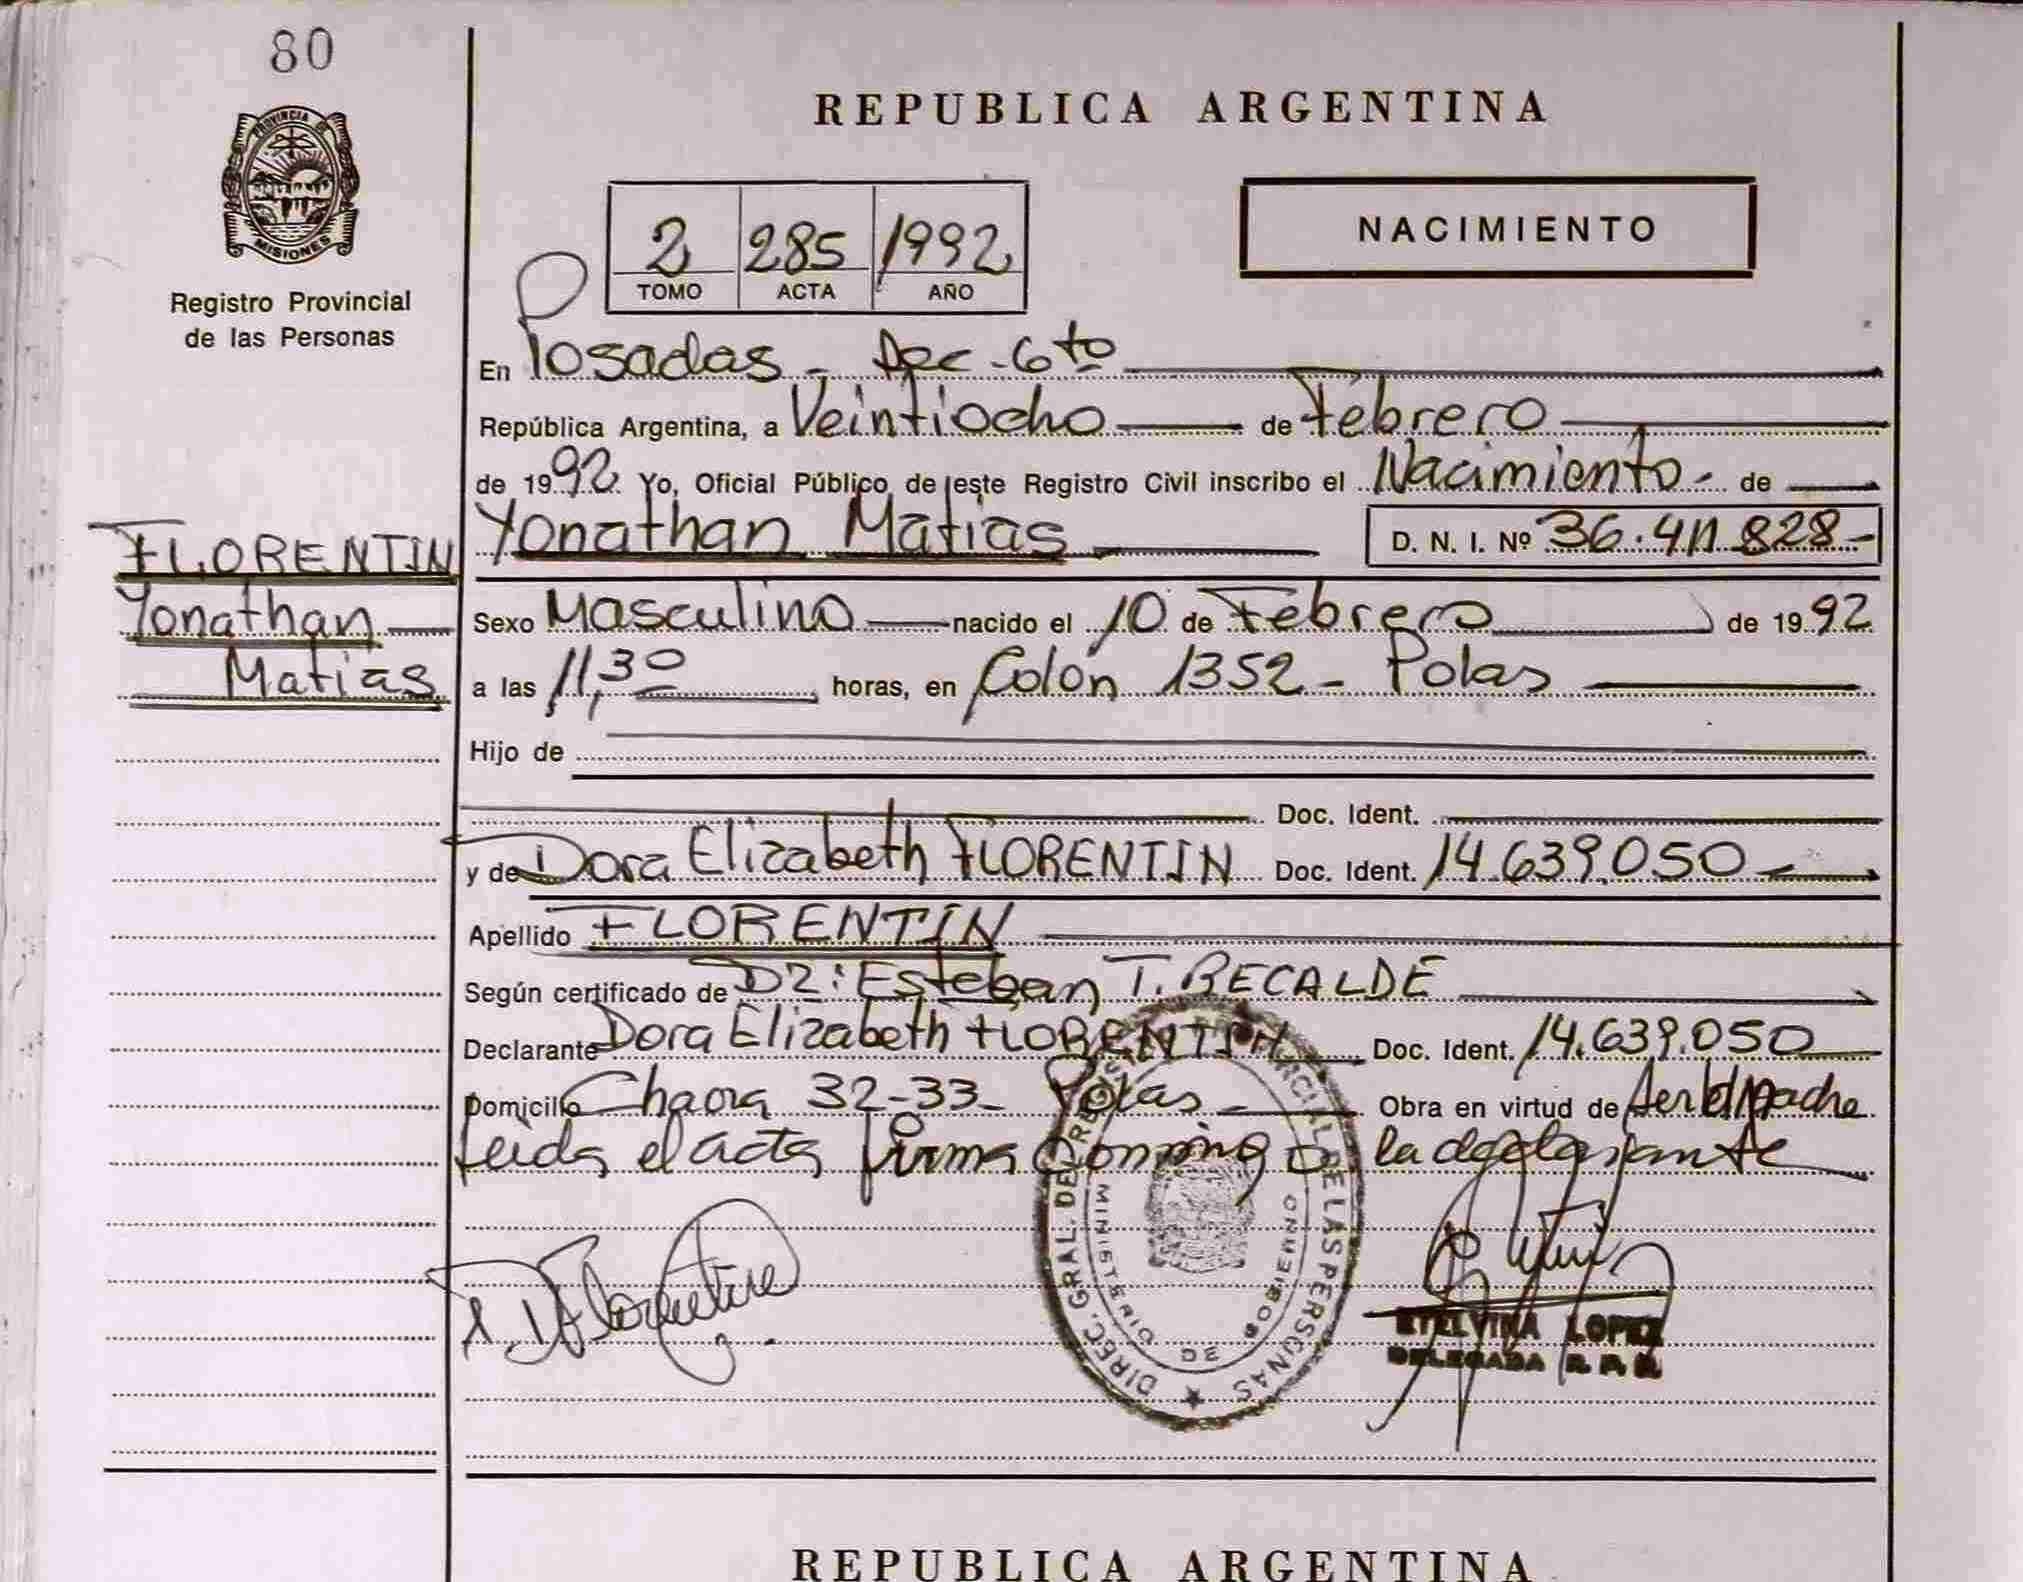 80
PROVINCIA DE
MISIONES
Registro Provincial
de las Personas
FLORENTIN
Yonathan
Matias
REPUBLICA ARGENTINA
2 285 1992
TOMO ACTA AÑO
NACIMIENTO
En Posadas - Sec - 6to
República Argentina, a Veintiocho de Febrero
de 1992 Yo, Oficial Público de este Registro Civil inscribo el Nacimiento - de
Yonathan Matias D. N. I. Nº 36.411.828-
Sexo Masculino nacido el 10 de Febrero de 1992
a las 11,30 horas, en Colón 1352 - Pdas
Hijo de
Doc. Ident.
y de Dora Elizabeth FLORENTIN Doc. Ident. 14.639.050-
Apellido FLORENTIN
Según certificado de DR: Esteban T. RECALDE
Declarante Dora Elizabeth FLORENTIN Doc. Ident. 14.639.050
Domicilio Chacra 32-33- Pdas - Obra en virtud de Ser la madre
Leida el acta firma conmigo la declarante
D Florentin
DIREC. GRAL. DEL REGISTRO PROVINCIAL DE LAS PERSONAS
MINISTERIO DE GOBIERNO
ETELVINA LOPEZ
DELEGADA R. P. P.
REPUBLICA ARGENTINA